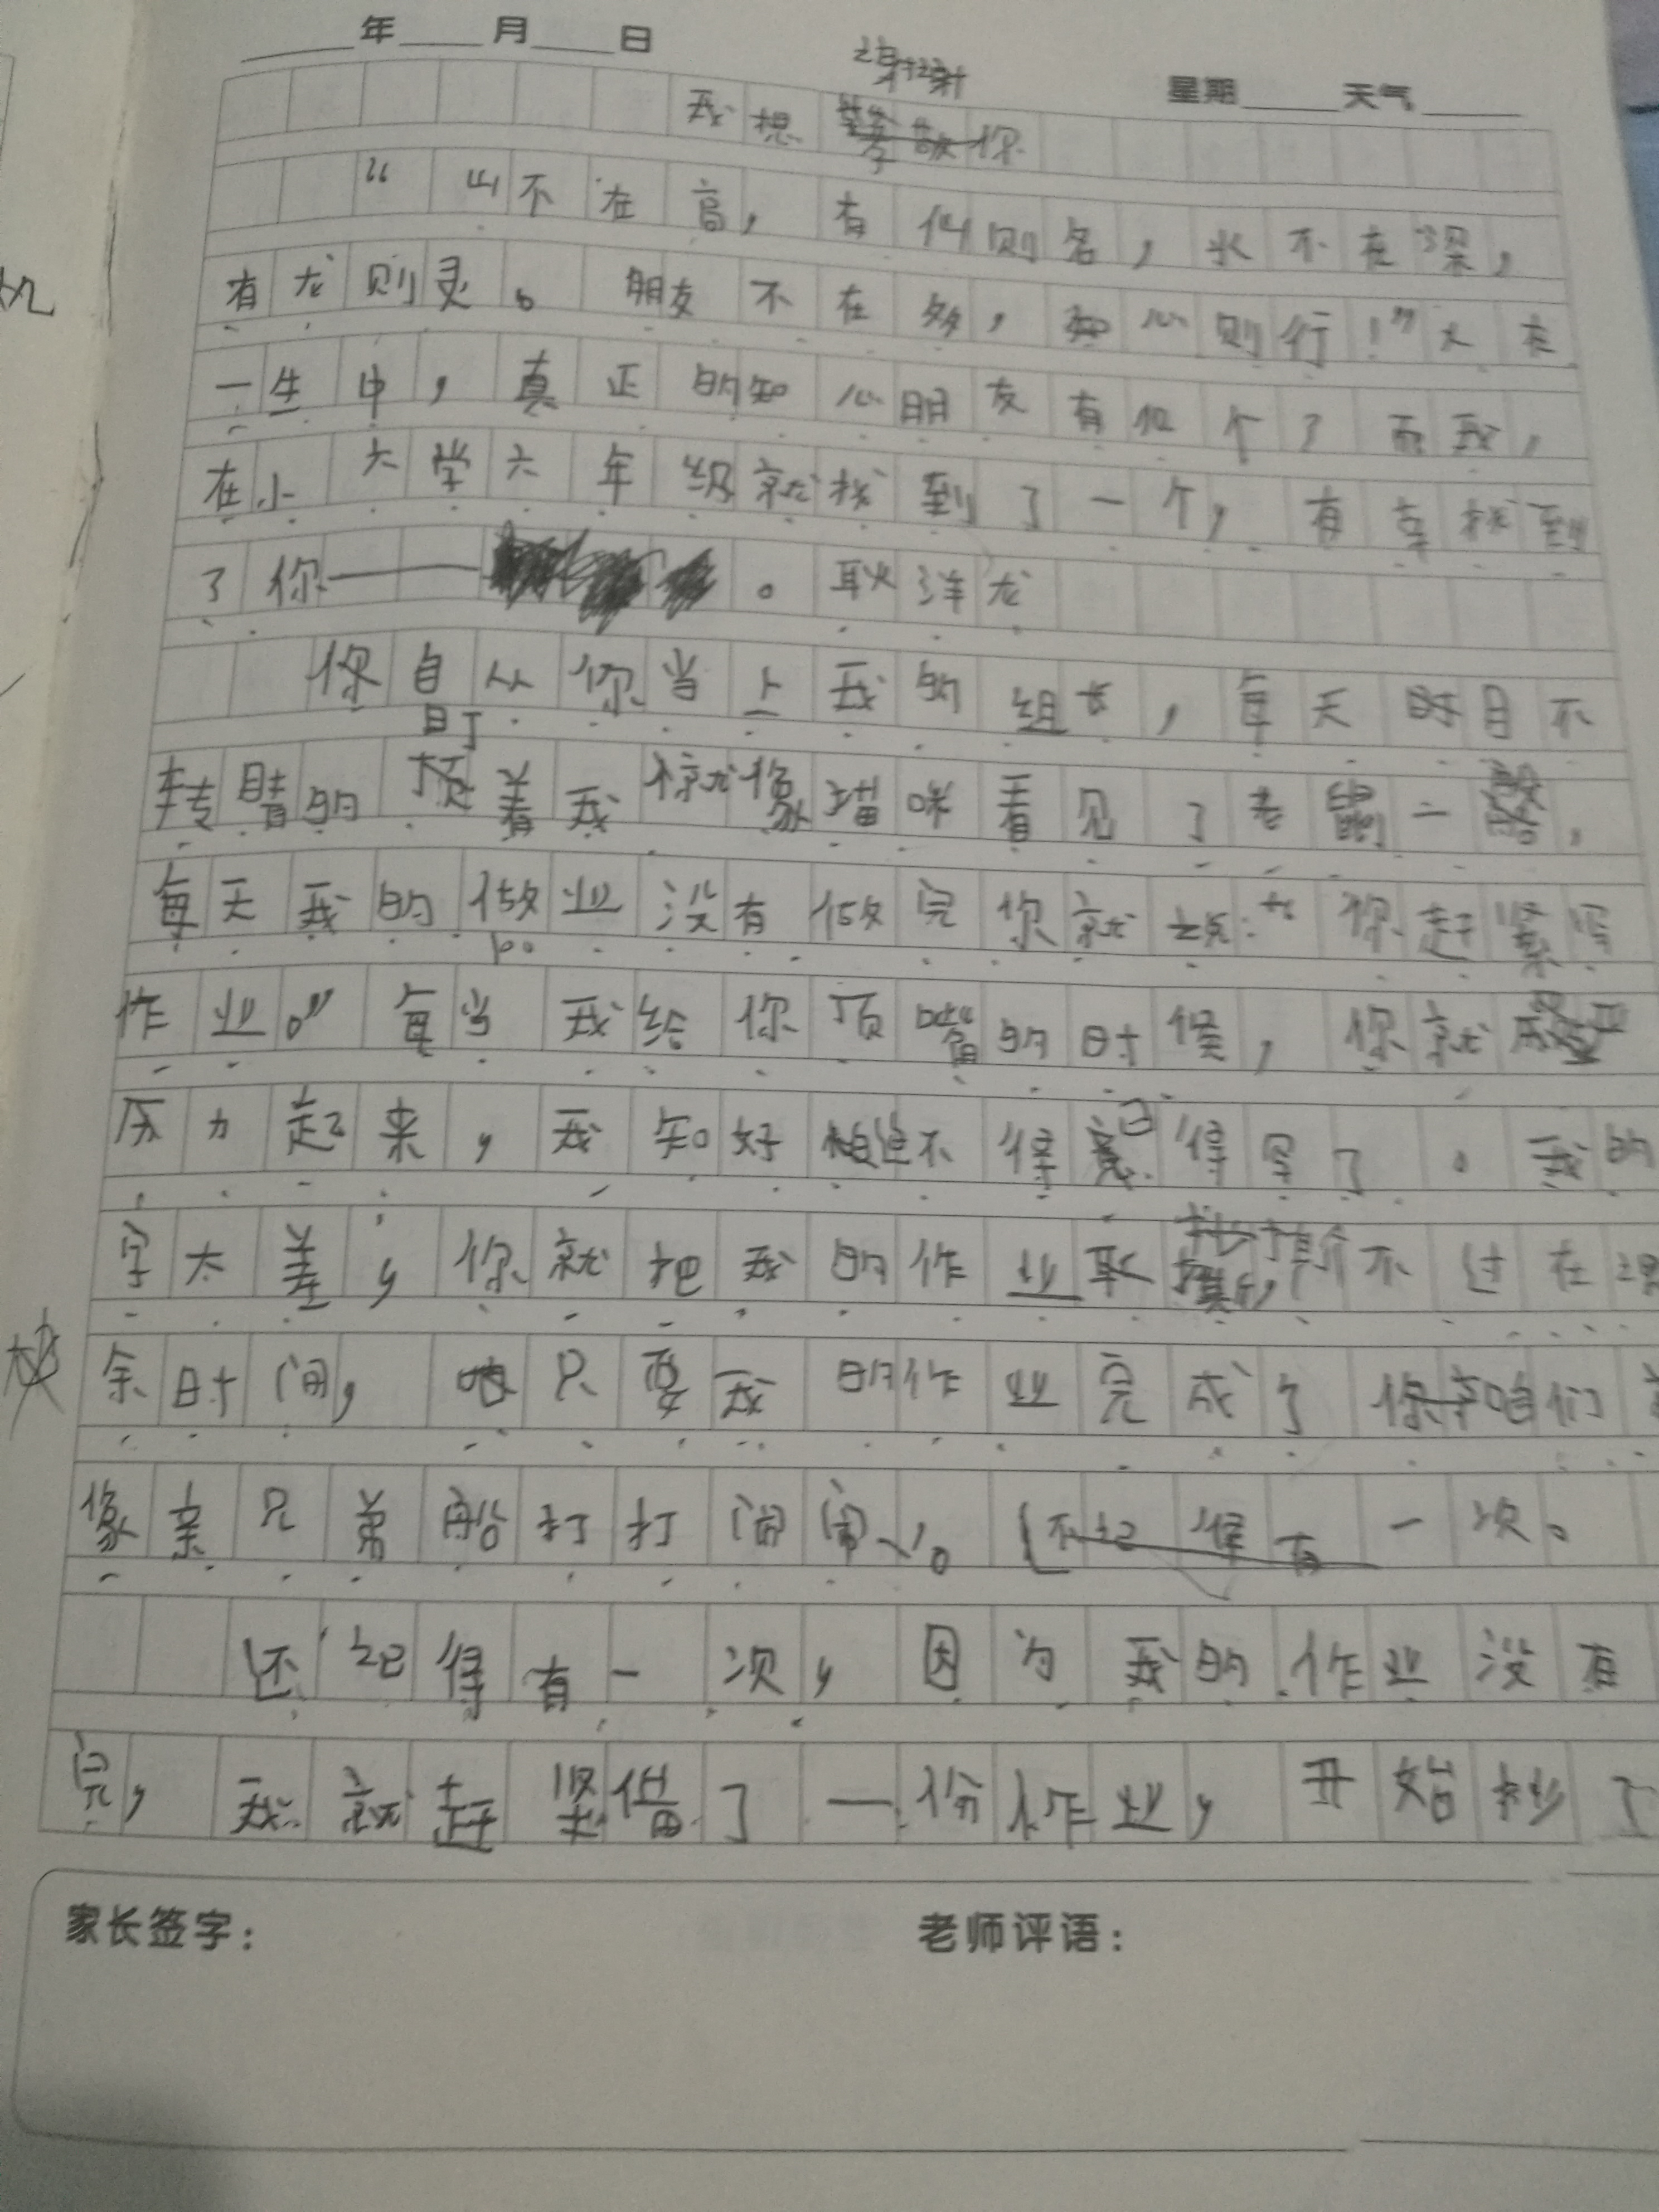 年 月 日
星期 天气
谢谢
我想 你
“山不在高，有仙则名，水不在深，
有龙则灵。朋友不在多，知心则行！”人在
一生中，真正的知心朋友有几个？而我，
在小 六学六年级就找到了一个，有幸找到
了你—— 。耿洋龙
你自从你当上我的组长，每天时目不
盯
转睛的 着我 就像猫咪看见了老鼠一 ，
每天我的做业没有做完你就说：“你赶紧写
作业。”每当我给你顶嘴的时候，你就 严
历力起来，我知好 不得 得写了。我的
字太差，你就把我的作业 撕 不过在课
余时间， 只要我的作业完成了 咱们
像亲兄弟船打打闹闹、。还记得有一次。
还记得有一次，因为我的作业没有
完，我就赶紧借了一份作业，开始抄了
家长签字：
老师评语：